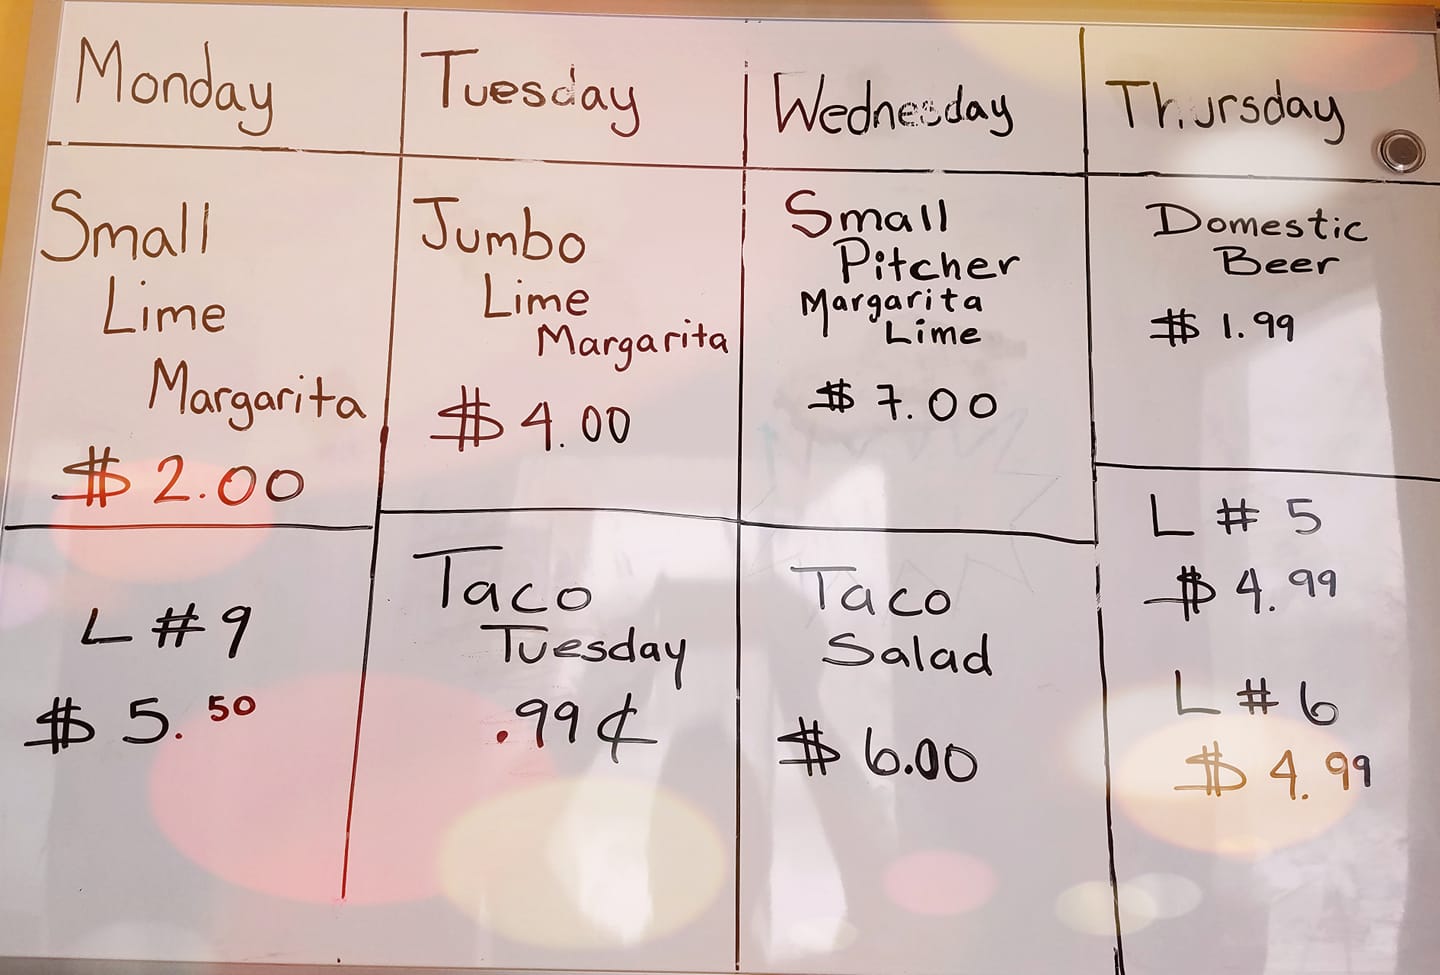 Monday
Small
Lime
Margarita
$ 2.00
L # 9
$ 5.50
Tuesday
Jumbo
Lime
Margarita
$ 4.00
Taco
Tuesday
.99 ¢
Wednesday
Small
Pitcher
Margarita
Lime
$ 7.00
Taco
Salad
$ 6.00
Thursday
Domestic
Beer
$ 1.99
L # 5
$ 4.99
L # 6
$ 4.99